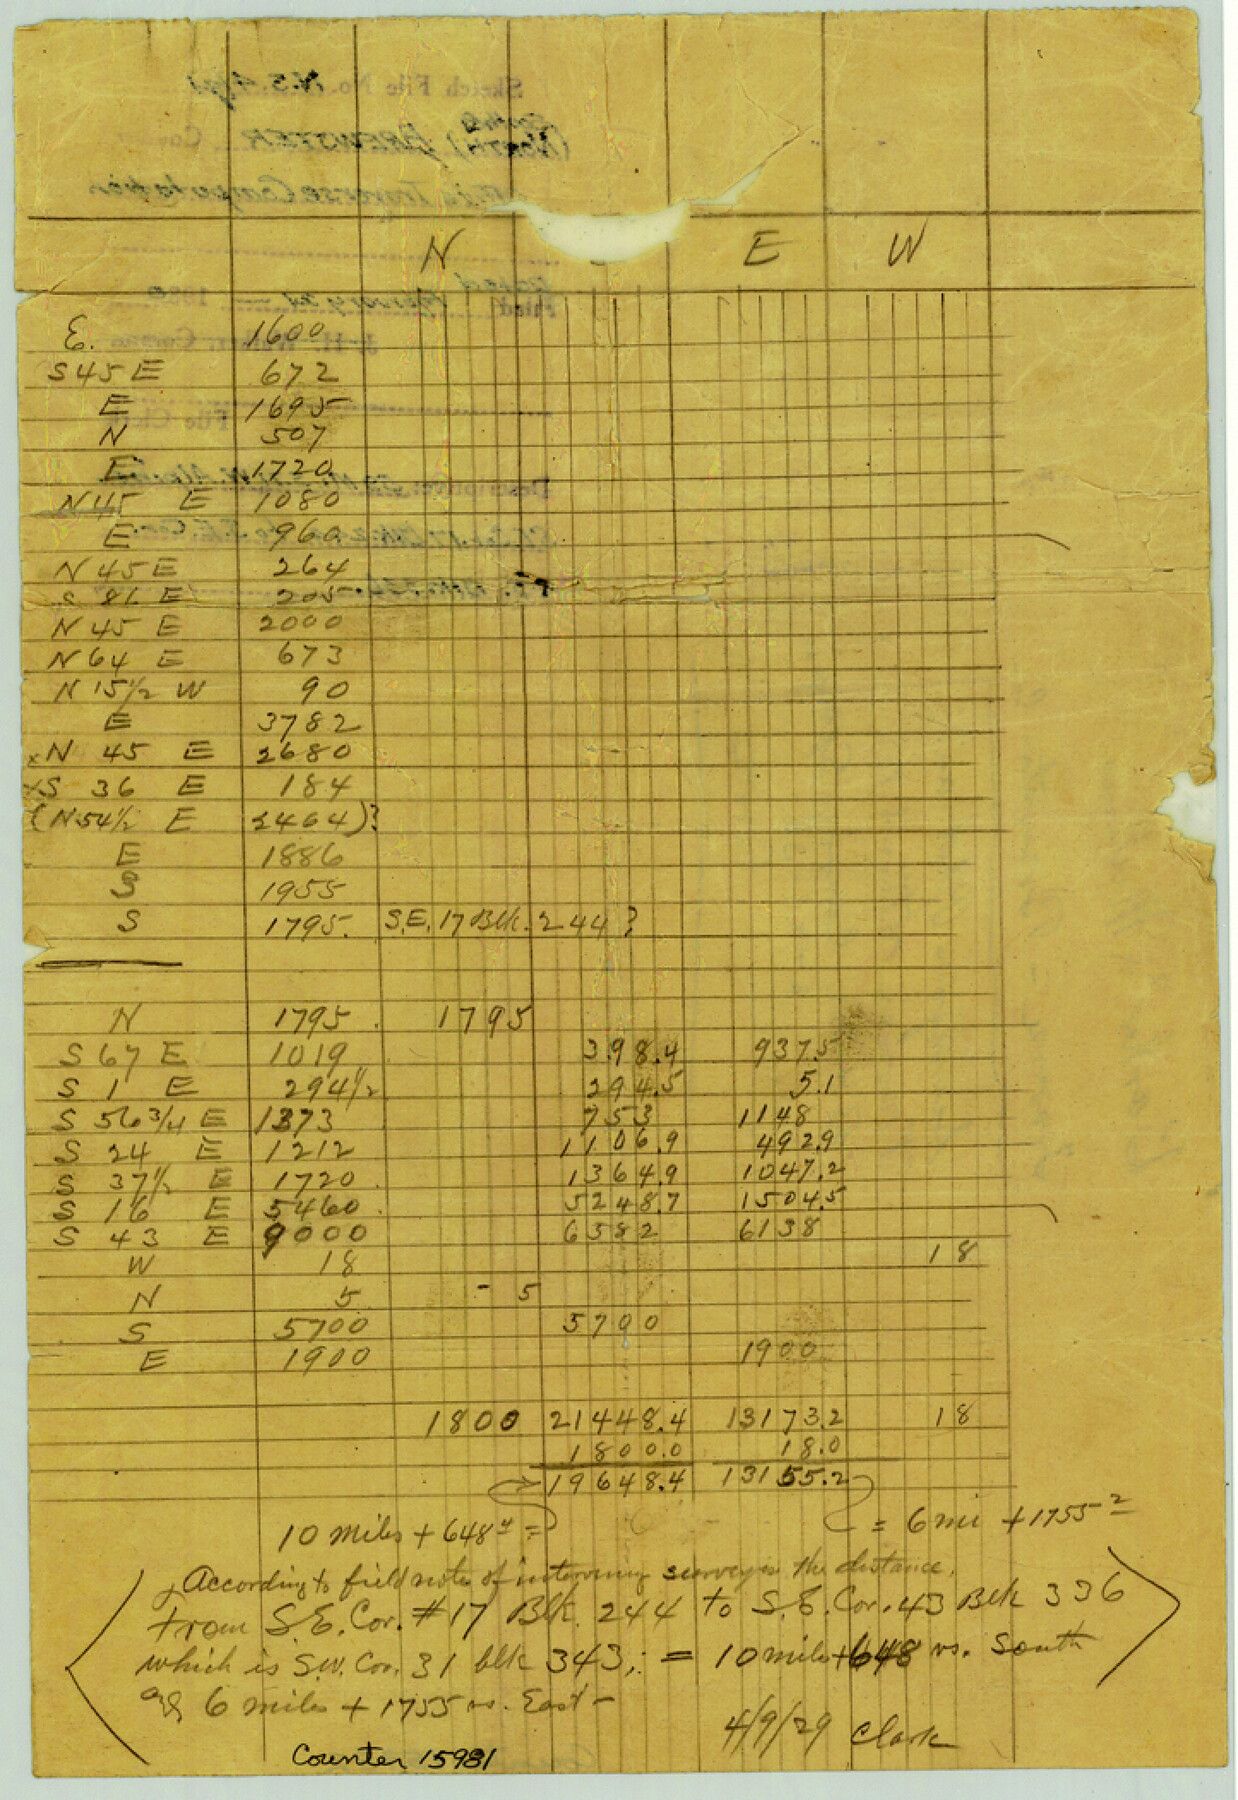 N E W
E. 1600
S 45 E 672
E 1695
N 507
E 1720
N 45 E 1080
E 960
N 45 E 264
S 81 E 205
N 45 E 2000
N 64 E 673
N 15 1/2 W 90
E 3782
x N 45 E 2680
x S 36 E 184
(N 54 1/2 E 2464)?
E 1886
S 1955
S 1795. S.E. 17 Blk. 244 ?
N 1795 . 1795
S 67 E 1019 398.4 937.5
S 1 E 294 1/2 294.5 5.1
S 56 3/4 E 1373 753 1148
S 24 E 1212 1106.9 492.9
S 37 1/2 E 1720 . 1364.9 1047.2
S 16 E 5460 . 5248.7 1504.5
S 43 E 9000 6582 6138
W 18 18
N 5 - 5
S 5700 5700
E 1900 1900
1800 21448.4 13173.2 18
1800.0 18.0
19648.4 13155.2
10 miles + 648 4 = = 6 mi + 1755 2
According to field notes of intervening surveys the distance,
from S.E. Cor. #17 Blk. 244 to S.E. Cor. 43 Blk 336
which is S.W. Cor. 31 blk 343, = 10 miles + 648 vs. South
& 6 miles + 1755 vs. East -
4/9/29 Clark
Counter 15981